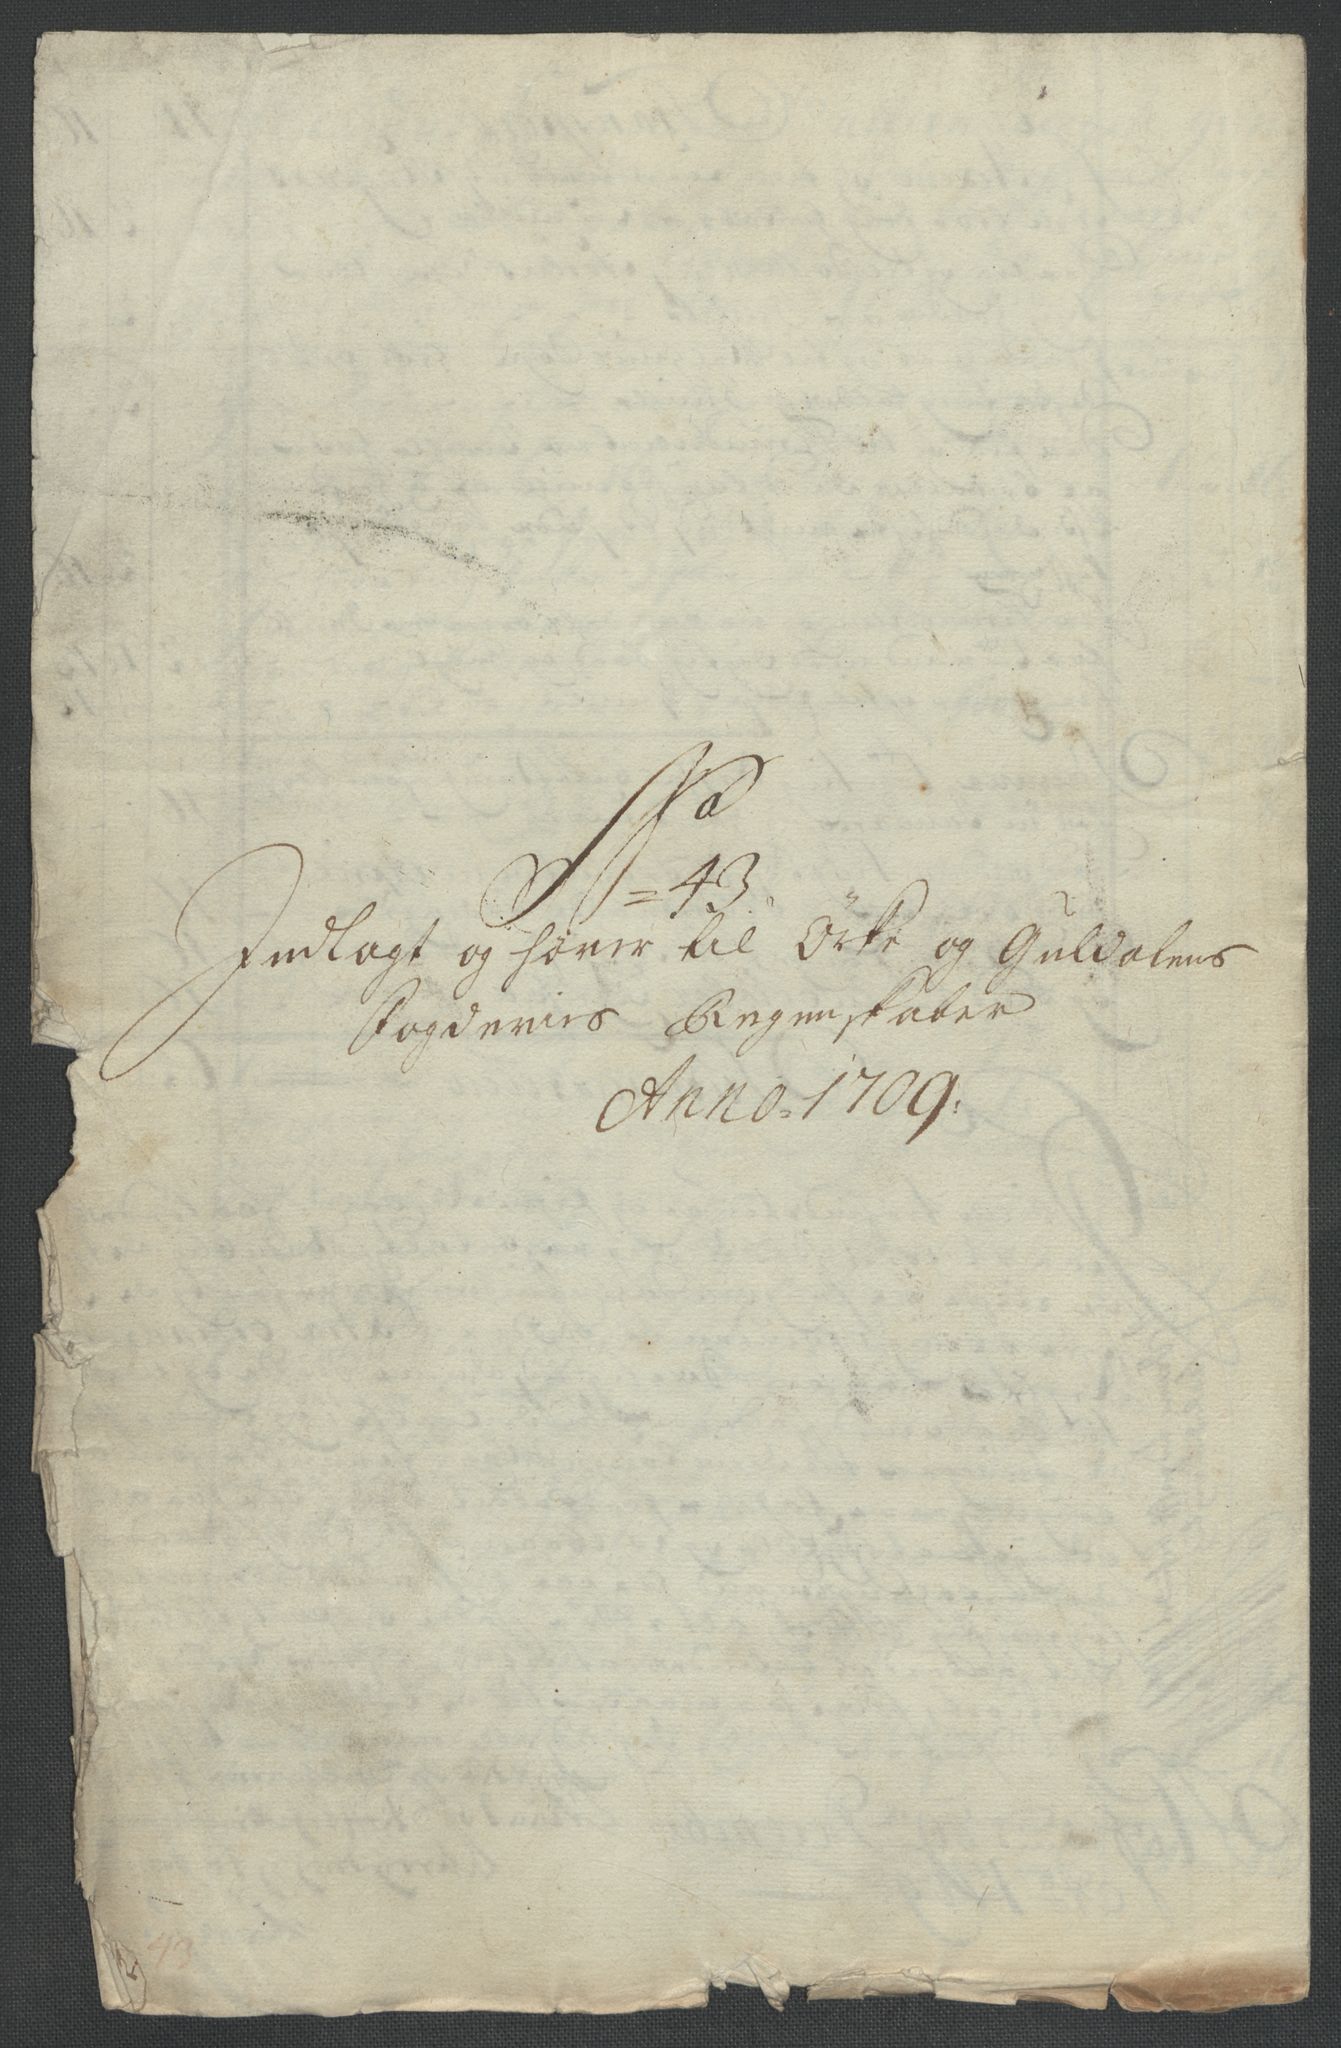 No
=43
Indlagt og hører til Örke og Guldalens
Fogderies Regenskaber
Anno 1709.
43